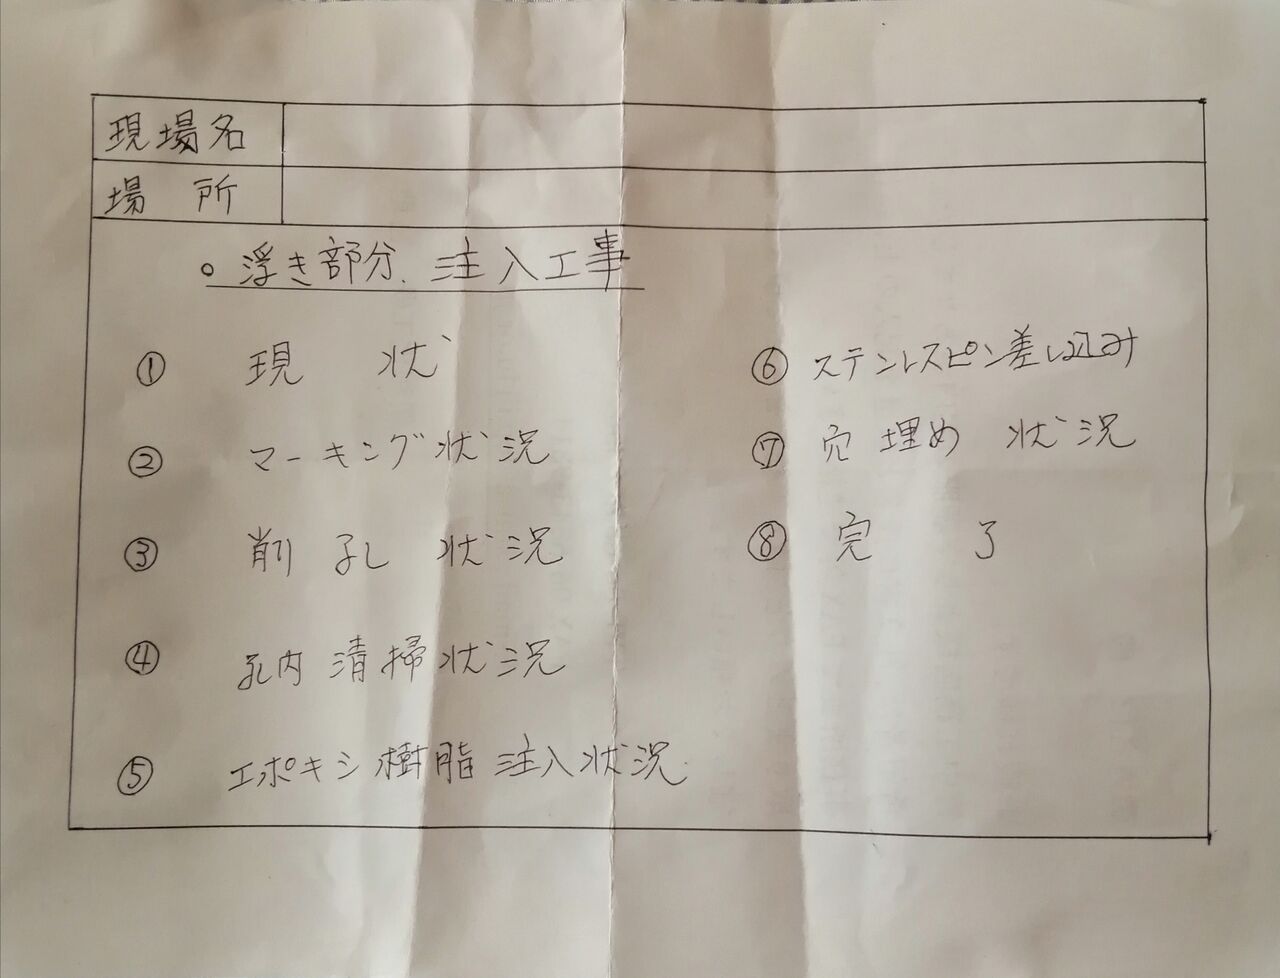 現場名
場 所
○ 浮き部分.注入工事
① 現 状
② マーキング状況
③ 削孔 状況
④ 孔内清掃状況
⑤ エポキシ樹脂注入状況
⑥ ステンレスピン差し込み
⑦ 穴埋め 状況
⑧ 完 了